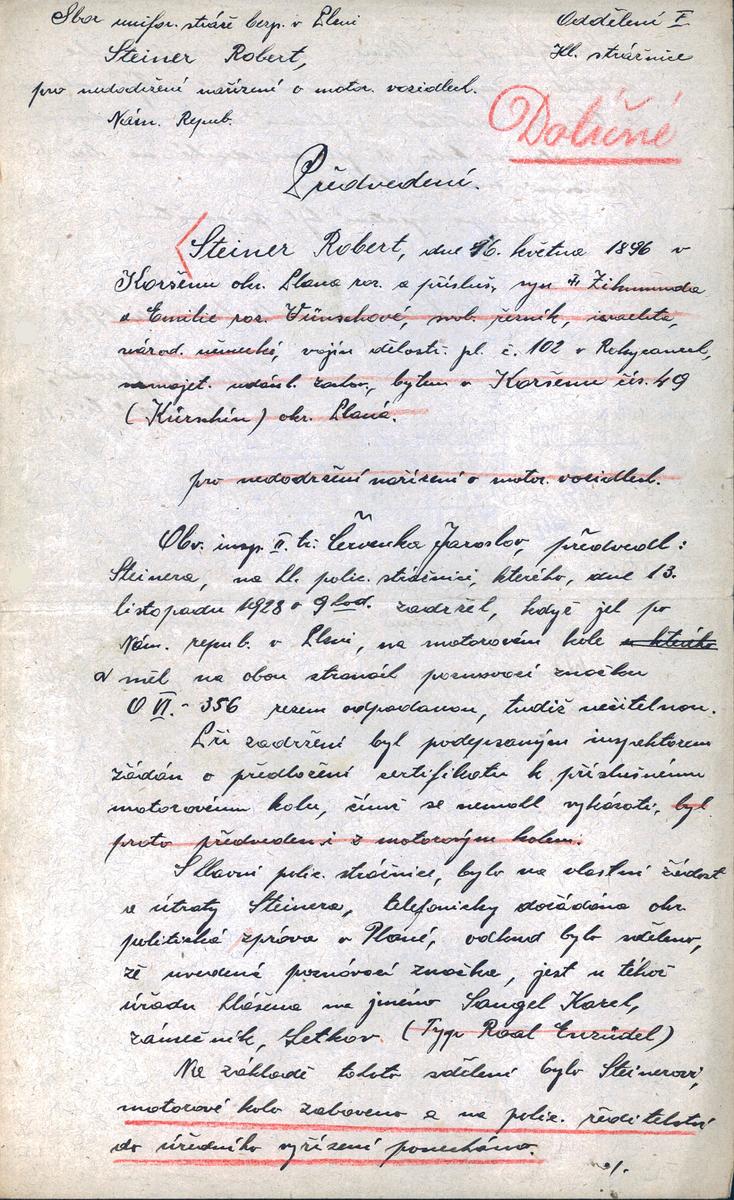 Sbor unifor. stráže bezp. v Plzni
Oddělení I.
Steiner Robert,
Hl. strážnice
pro nedodržení nařízení o motor. vozidlech.
Nám. Repub.
Dolične
Předvedení.
Steiner Robert, dne 26. května 1896 v
Koršenu okr. Plana roz. a přísluš. syn Zikmunda
a Emilie roz. Wünschové, svob. řezník, israelita,
národ. německé, vojín dělostř. pl. č. 102 v Rokycanech,
nemajet. udánl. zachov., bytem v Koršenu čís. 49
(Kürschin) okr. Planá.
pro nedodržení nařízení o motor. vozidlech.
Obv. insp. II. tř. Červenka Jaroslav, předvedl:
Steinera, na hl. polic. strážnici, kterého, dne 13.
listopadu 1928 v 9 hod. zadržel, když jel po
Nám. repub. v Plzni, na motorovém kole u kterého
a měl na obou stranách poznávací značku
O VI. - 356 rezem odpadanou, tudíž nečitelnou.
Při zadržení byl podepsaným inspektorem
žádán o předložení certifikátu k příslušnému
motorovému kolu, čímž se nemohl vykázati, byl
proto předveden i z motorovým kolem.
S hlavní polic. strážnice, bylo na vlastní žádost
a útraty Steinera, telefonicky dožádána okr.
politická zpráva v Plané, odkud bylo sděleno,
že uvedená poznávací značka, jest u téhož
úřadu hlášena na jméno Sangel Karel,
zámečník, Letkov. (Typ Roal Enzúdel)
Na základě tohoto sdělení bylo Steinerovi,
motorové kolo zabaveno a na polic. ředitelství
do úředního vyřízení ponecháno.